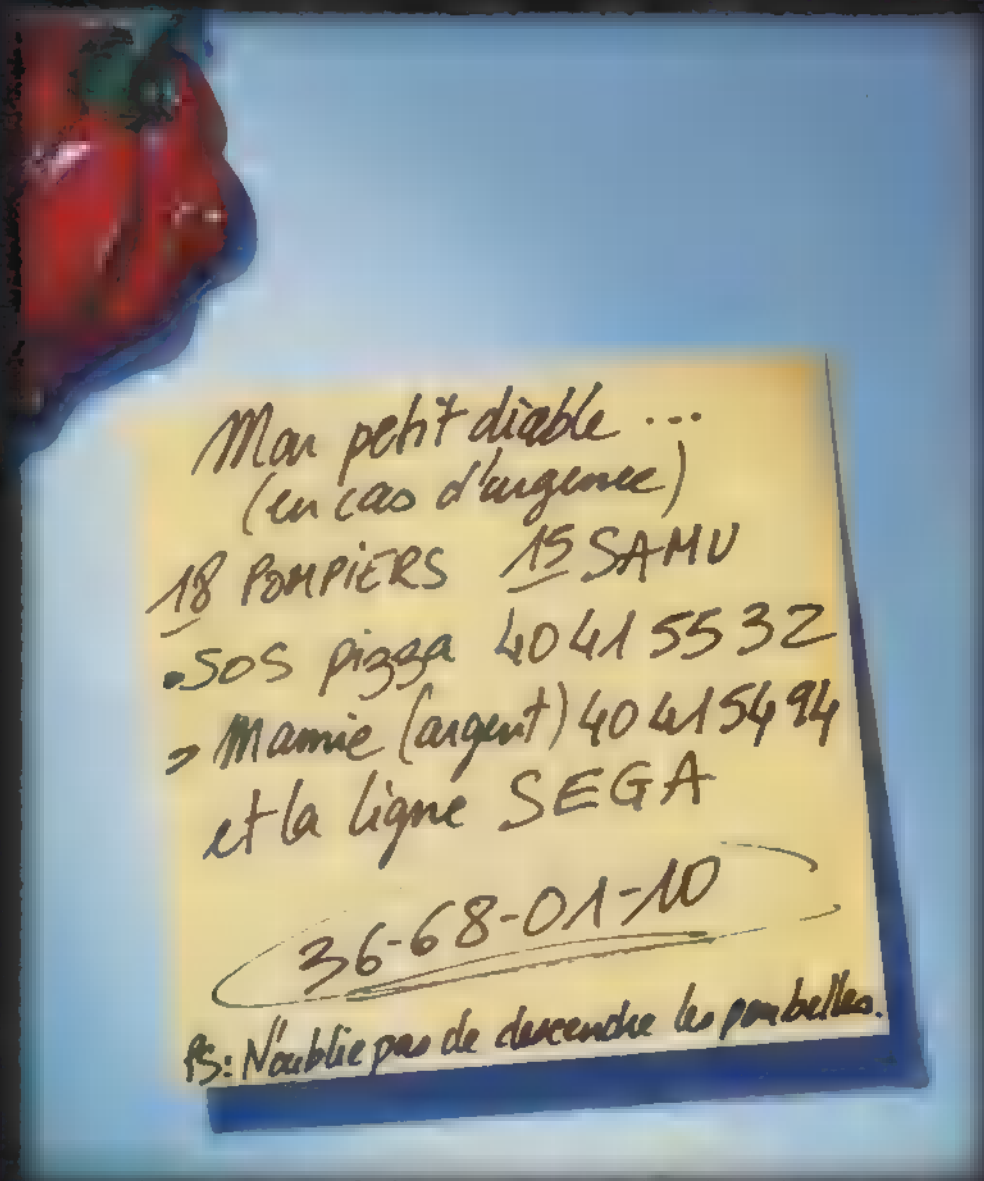 Mon petit diable ...
(en cas d'urgence)
18 POMPIERS 15 SAMU
• SOS pizza 40 41 55 32
> Mamie (argent) 40 41 54 94
et la ligne SEGA
36-68-01-10
PS: N'oublie pas de descendre les poubelles.